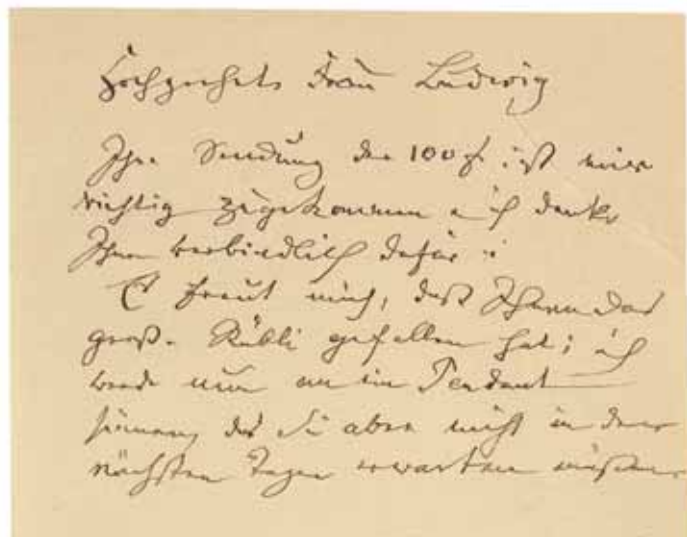 Hochgeehrte Frau Ludwig
Ihre Sendung der 100 f. ist mir
richtig zugekommen u ich danke
Ihnen verbindlich dafür.
Es freut mich, daß Ihnen das
große Rübli gefallen hat; ich
werde nun an ein Pendant
sinnen, das Sie aber nicht in den
nächsten Tagen erwarten müssen